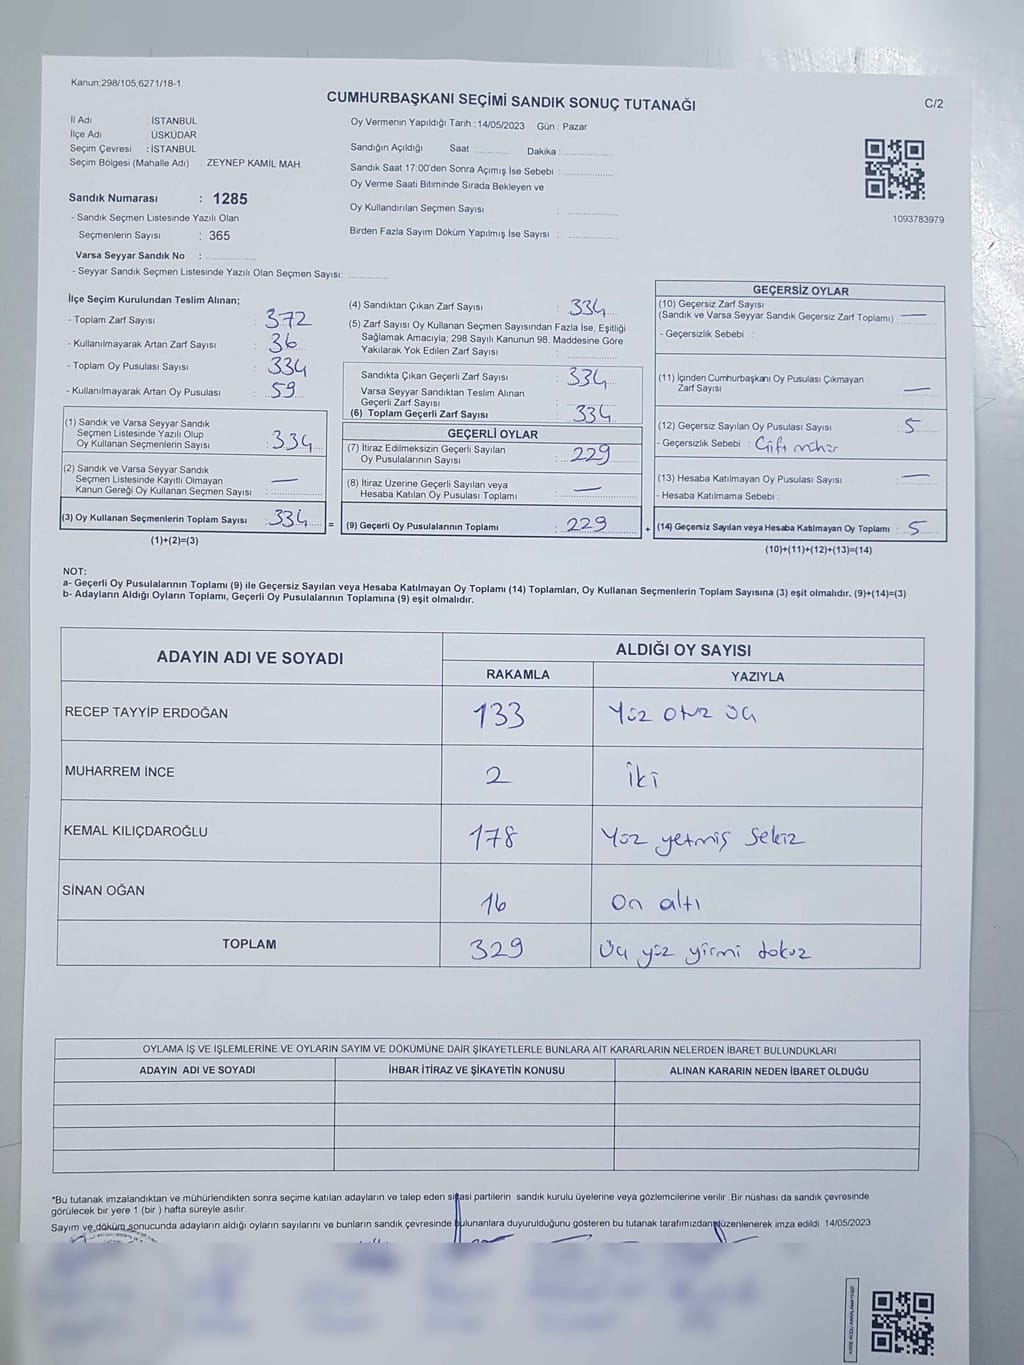 Kanun;298/105;6271/18-1
CUMHURBAŞKANI SEÇİMİ SANDIK SONUÇ TUTANAĞI
C/2
İl Adı : İSTANBUL
İlçe Adı : ÜSKÜDAR
Seçim Çevresi : İSTANBUL
Seçim Bölgesi (Mahalle Adı) : ZEYNEP KAMİL MAH.
Sandık Numarası : 1285
- Sandık Seçmen Listesinde Yazılı Olan
Seçmenlerin Sayısı : 365
Varsa Seyyar Sandık No :
- Seyyar Sandık Seçmen Listesinde Yazılı Olan Seçmen Sayısı:
Oy Vermenin Yapıldığı Tarih : 14/05/2023 Gün : Pazar
Sandığın Açıldığı Saat : Dakika :
Sandık Saat 17:00'den Sonra Açımış İse Sebebi :
Oy Verme Saati Bitiminde Sırada Bekleyen ve
Oy Kullandırılan Seçmen Sayısı :
Birden Fazla Sayım Döküm Yapılmış İse Sayısı :
1093783979
İlçe Seçim Kurulundan Teslim Alınan;
- Toplam Zarf Sayısı : 372
- Kullanılmayarak Artan Zarf Sayısı : 36
- Toplam Oy Pusulası Sayısı : 334
- Kullanılmayarak Artan Oy Pusulası : 59
(1) Sandık ve Varsa Seyyar Sandık
Seçmen Listesinde Yazılı Olup
Oy Kullanan Seçmenlerin Sayısı : 334
(2) Sandık ve Varsa Seyyar Sandık
Seçmen Listesinde Kayıtlı Olmayan
Kanun Gereği Oy Kullanan Seçmen Sayısı : —
(3) Oy Kullanan Seçmenlerin Toplam Sayısı : 334 =
(1)+(2)=(3)
(4) Sandıktan Çıkan Zarf Sayısı : 334
(5) Zarf Sayısı Oy Kullanan Seçmen Sayısından Fazla İse, Eşitliği
Sağlamak Amacıyla; 298 Sayılı Kanunun 98. Maddesine Göre
Yakılarak Yok Edilen Zarf Sayısı :
Sandıkta Çıkan Geçerli Zarf Sayısı : 334
Varsa Seyyar Sandıktan Teslim Alınan
Geçerli Zarf Sayısı :
(6) Toplam Geçerli Zarf Sayısı : 334
GEÇERLİ OYLAR
(7) İtiraz Edilmeksizin Geçerli Sayılan
Oy Pusulalarının Sayısı : 229
(8) İtiraz Üzerine Geçerli Sayılan veya
Hesaba Katılan Oy Pusulası Toplamı : —
(9) Geçerli Oy Pusulalarının Toplamı : 229 +
GEÇERSİZ OYLAR
(10) Geçersiz Zarf Sayısı
(Sandık ve Varsa Seyyar Sandık Geçersiz Zarf Toplamı) : —
- Geçersizlik Sebebi :
(11) İçinden Cumhurbaşkanı Oy Pusulası Çıkmayan
Zarf Sayısı —
(12) Geçersiz Sayılan Oy Pusulası Sayısı : 5
- Geçersizlik Sebebi : Çift mühür
(13) Hesaba Katılmayan Oy Pusulası Sayısı : —
- Hesaba Katılmama Sebebi :
(14) Geçersiz Sayılan veya Hesaba Katılmayan Oy Toplamı : 5
(10)+(11)+(12)+(13)=(14)
NOT:
a- Geçerli Oy Pusulalarının Toplamı (9) ile Geçersiz Sayılan veya Hesaba Katılmayan Oy Toplamı (14) Toplamları, Oy Kullanan Seçmenlerin Toplam Sayısına (3) eşit olmalıdır. (9)+(14)=(3)
b- Adayların Aldığı Oyların Toplamı, Geçerli Oy Pusulalarının Toplamına (9) eşit olmalıdır.
ADAYIN ADI VE SOYADI ALDIĞI OY SAYISI
RAKAMLA YAZIYLA
RECEP TAYYİP ERDOĞAN 133 Yüz otuz üç
MUHARREM İNCE 2 İki
KEMAL KILIÇDAROĞLU 178 Yüz yetmiş sekiz
SİNAN OĞAN 16 On altı
TOPLAM 329 Üç yüz yirmi dokuz
OYLAMA İŞ VE İŞLEMLERİNE VE OYLARIN SAYIM VE DÖKÜMÜNE DAİR ŞİKAYETLERLE BUNLARA AİT KARARLARIN NELERDEN İBARET BULUNDUKLARI
ADAYIN ADI VE SOYADI İHBAR İTİRAZ VE ŞİKAYETİN KONUSU ALINAN KARARIN NEDEN İBARET OLDUĞU
*Bu tutanak imzalandıktan ve mühürlendikten sonra seçime katılan adayların ve talep eden siyasi partilerin sandık kurulu üyelerine veya gözlemcilerine verilir. Bir nüshası da sandık çevresinde
görülecek bir yere 1 (bir ) hafta süreyle asılır.
Sayım ve döküm sonucunda adayların aldığı oyların sayılarını ve bunların sandık çevresinde bulunanlara duyurulduğunu gösteren bu tutanak tarafımızdan düzenlenerek imza edildi. 14/05/2023